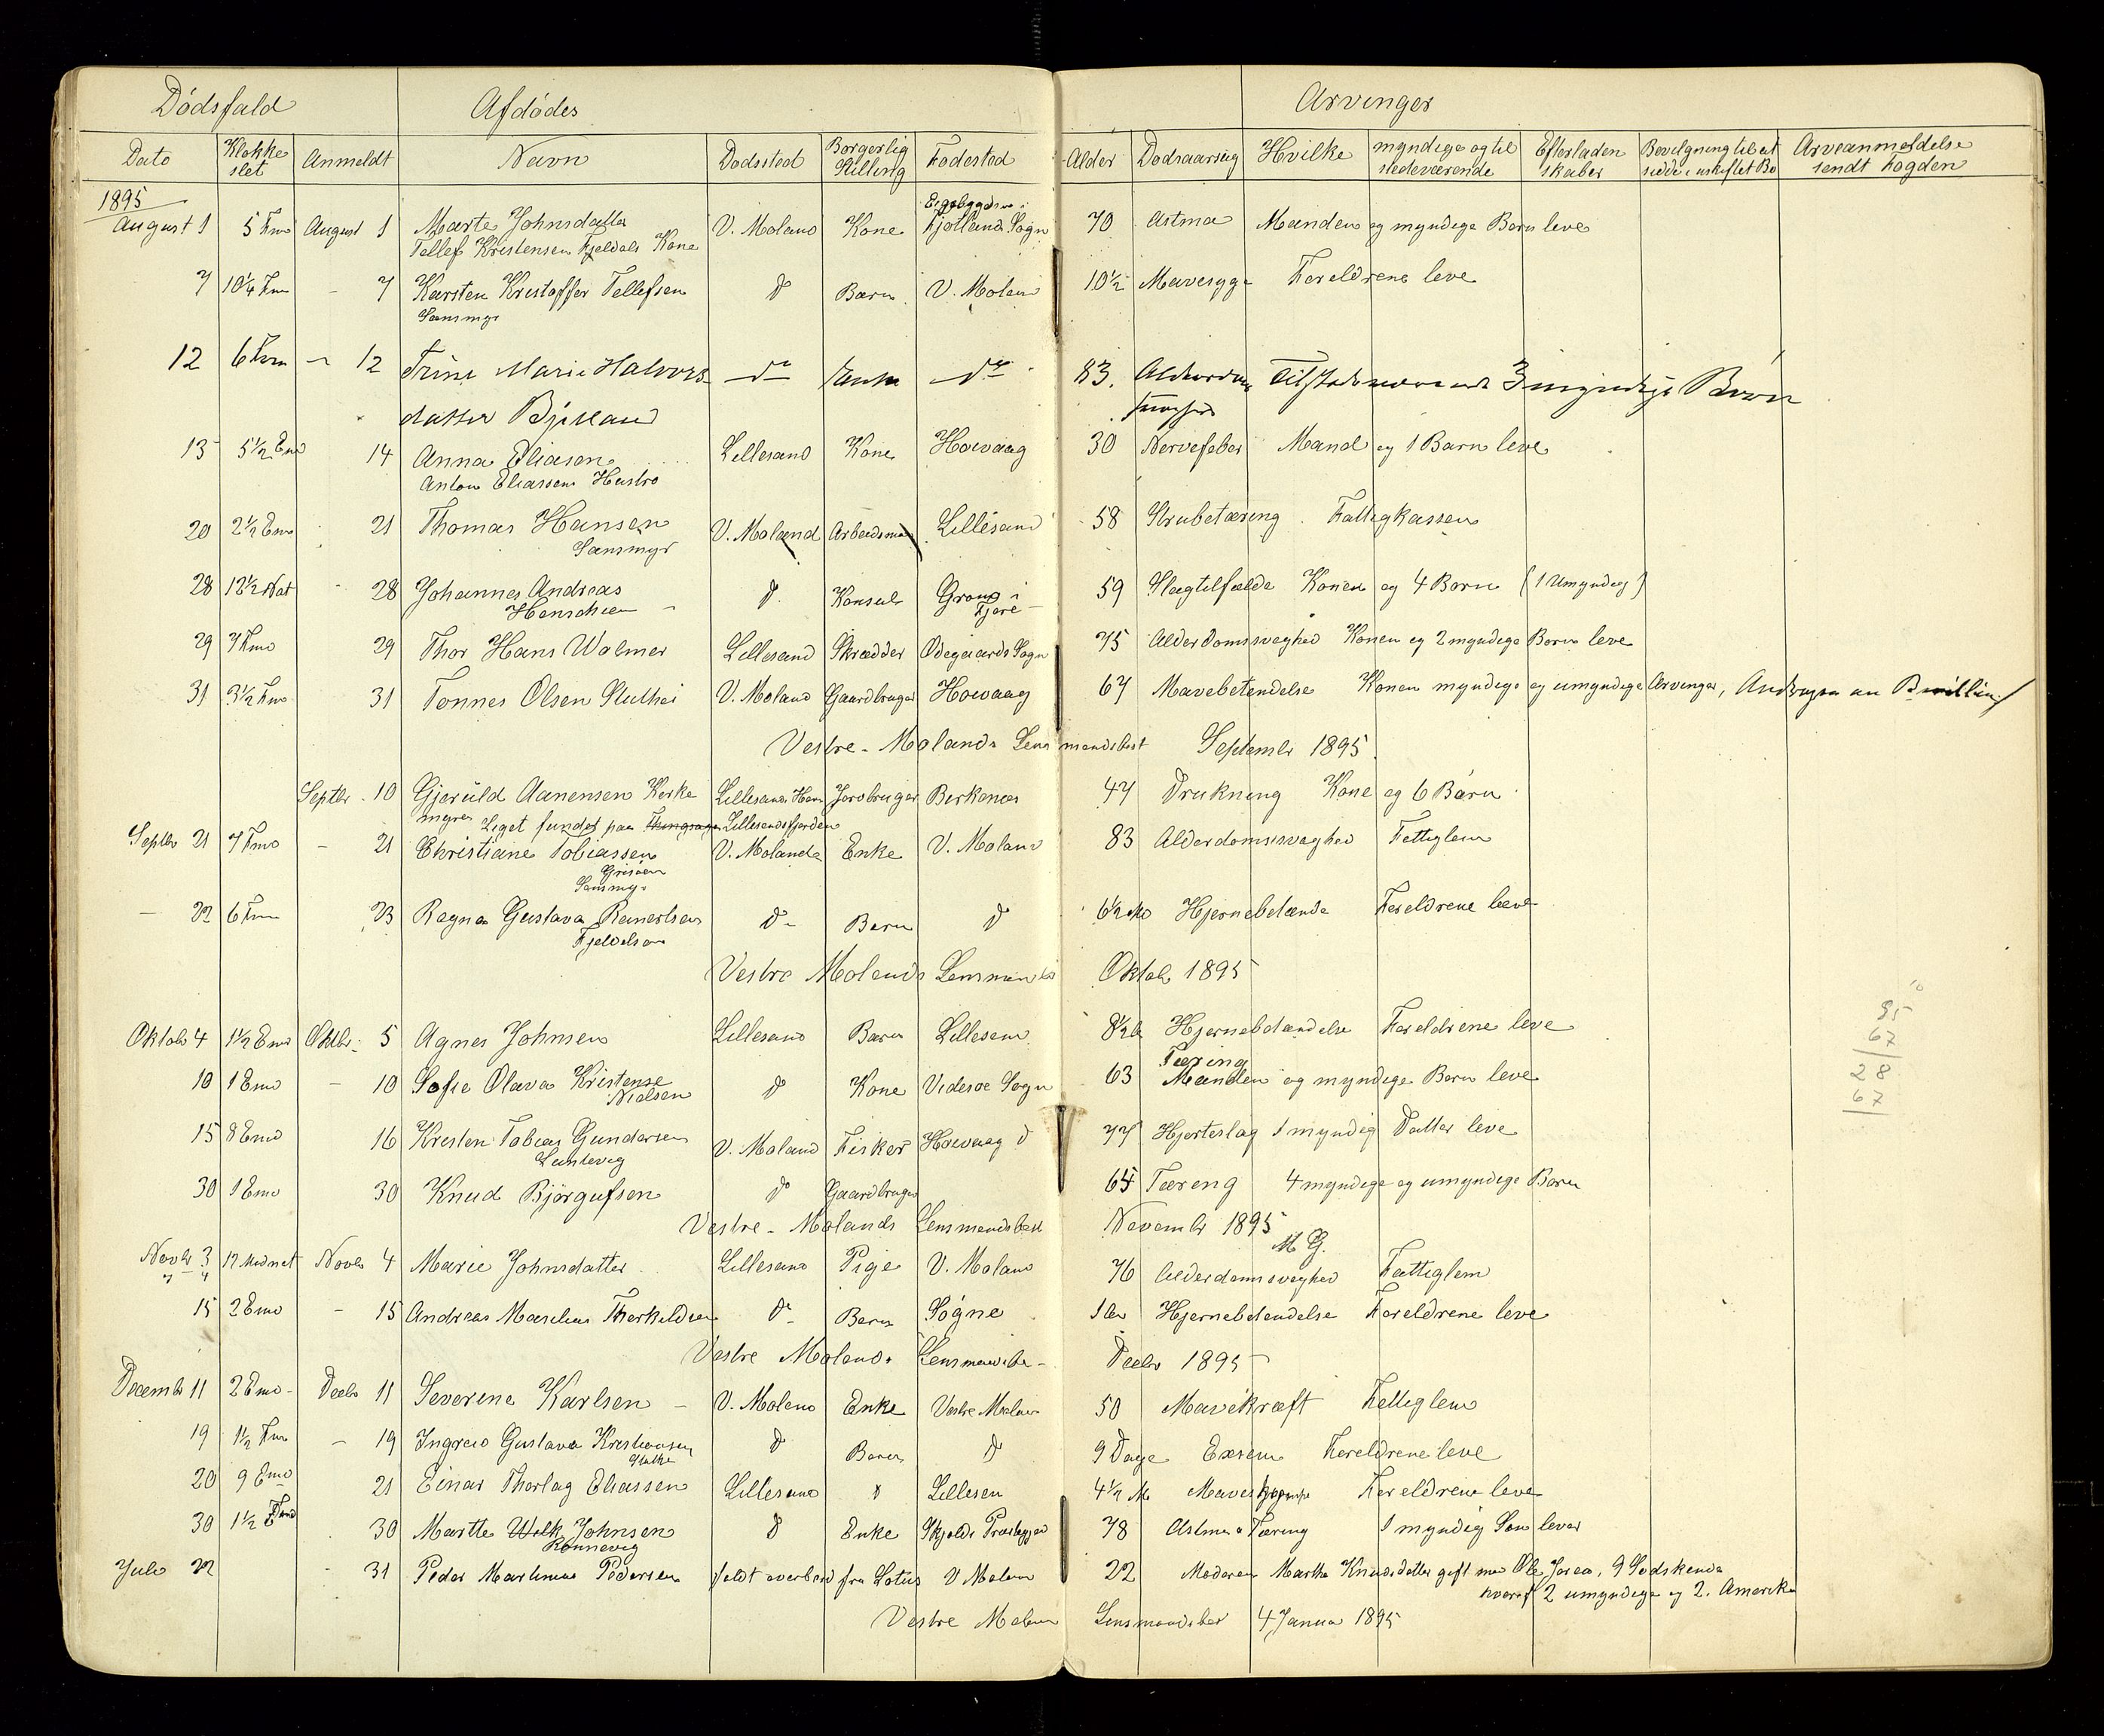 Dödsfald Afdödes Arvinger
Dato Klokkeslet Anmeldt Navn Dødssted Borgerlig Stilling Fødested Alder Dødsaarsag Hvilke myndige og tilstedeværende Efterladenskaber Bevilgning til at sidde i uskiftet Bo Arveanmeldelse sendt Fogden
1895
August 1 5 Fmd August 1 Marte Johnsdatter V. Moland Kone Fjotland Sogn 70 Astma Manden og myndige Børn leve
Tellef Kristensen Kjeldals Kone
7 10¼ Fm - 7 Karsten Kristoffer Tellefsen do Barn V. Moland 10½ Mavesyge Foreldrene leve
Sansmyr
12 6 Fm - 12 Trine Marie Halvors do Enke do 83. Alderdoms Tilstedeværende 3 myndige Børn
datter
13 5½ Emd 14 Anna Eliasen Lillesand Kone Høivaag 30 Nervefeber Mand og 1 Barn leve
Anton Eliassens Hustro
20 2½ Emd 21 Thomas Hansen V. Moland Arbeidsmand Lillesand 58 Strubetæring Fattigkassen
Sansmyr
28 12½ Nat - 28 Johannes Andreas do Konsul i Fjære 59 Slagtilfælde Konen og 4 Børn (1 Umyndig)
Henschien
29 7 Fmd 29 Thor Hans Walmer Lillesand Skrædder Ødegaards Sogn 75 Alderdomssvaghed Konen og 2 myndige Børn leve
31 3½ Fmd 31 Tønnes Olsen Stuthei V. Moland Gaardbruger Høivaag 67 Mavebetændelse Konen myndige og umyndige Arvinger,
Vestre-Molands Lensmandsbest September 1895
Septbr. 10 Gjeruld Aanensen Kirke Lillesands Havn Jordbruger Birkenæs 47 Drukning Kone og 6 Børn
myren Liget fundet paa Lillesandsfjorden
Septbr 21 7 Fmd - 21 Christiane Tobiassen V. Moland Enke V. Moland 83 Alderdomssvaghed Fattiglem
Grisøen
Sansmyr
- 22 6 Fm 23 Ragna Gustava Reinertsen do Barn do 6½ Mo Hjernebetænde Foreldrene leve
Fjeldalsøen
Vestre Molands Lensmands Oktobr 1895
Oktobr 4 1½ Emd Oktbr. 5 Agnes Johnsen Lillesand Barn Lillesand 8½ Hjernebetændelse Foreldrene leve
Tæring
10 1 Emd - 10 Sofie Olava Kristense do Kone Sogn 63 Manden og myndige Børn leve
Nielsen
15 8 Emd 16 Kristen Tobias Gundersen V. Moland Fisker Høivaag 77 Hjerteslag 1 myndig Datter leve
30 1 Emd 30 Knud Björgufsen do Gaardbruger 65 Tæring 4 myndige og umyndige Børn
Vestre-Molands Lensmandsbest Novembr 1895
M G.
Novbr 3 12 Midnat Novbr 4 Marie Johnsdatter Lillesand Pige V. Moland 76 Alderdomssvaghed Fattiglem
15 2 Emd - 15 Andreas Therkildsen do Barn Søgne 1 Hjernebetændelse Foreldrene leve
Vestre Molands Lensmandsbe- Decbr 1895
Decembr 11 2 Emd - Decbr 11 Severine Karlsen V. Moland Enke Vestre Moland 50 Mavekræft Fattiglem
19 1½ Fm - 19 Gustava Kristiansen do Barn do 9 Dage Foreldrene leve
20 9 Emd 21 Einar Thorlag Eliassen Lillesand do Lillesan 4½ M Foreldrene leve
30 1½ 30 Marthe Johnsen do Enke 78 Astma Tæring 1 myndig Søn lever
Juli 22 - 31 Peder Martinus Pedersen faldt overbord fra Lotus V Moland 22 Moderen Martha Knudsdatter gift med Ole 9 Sødskende
hvoraf 2 umyndige og 2 i Amerika
Vestre Moland Lensmandsbe 4 Januar 1895
95
67
28
67